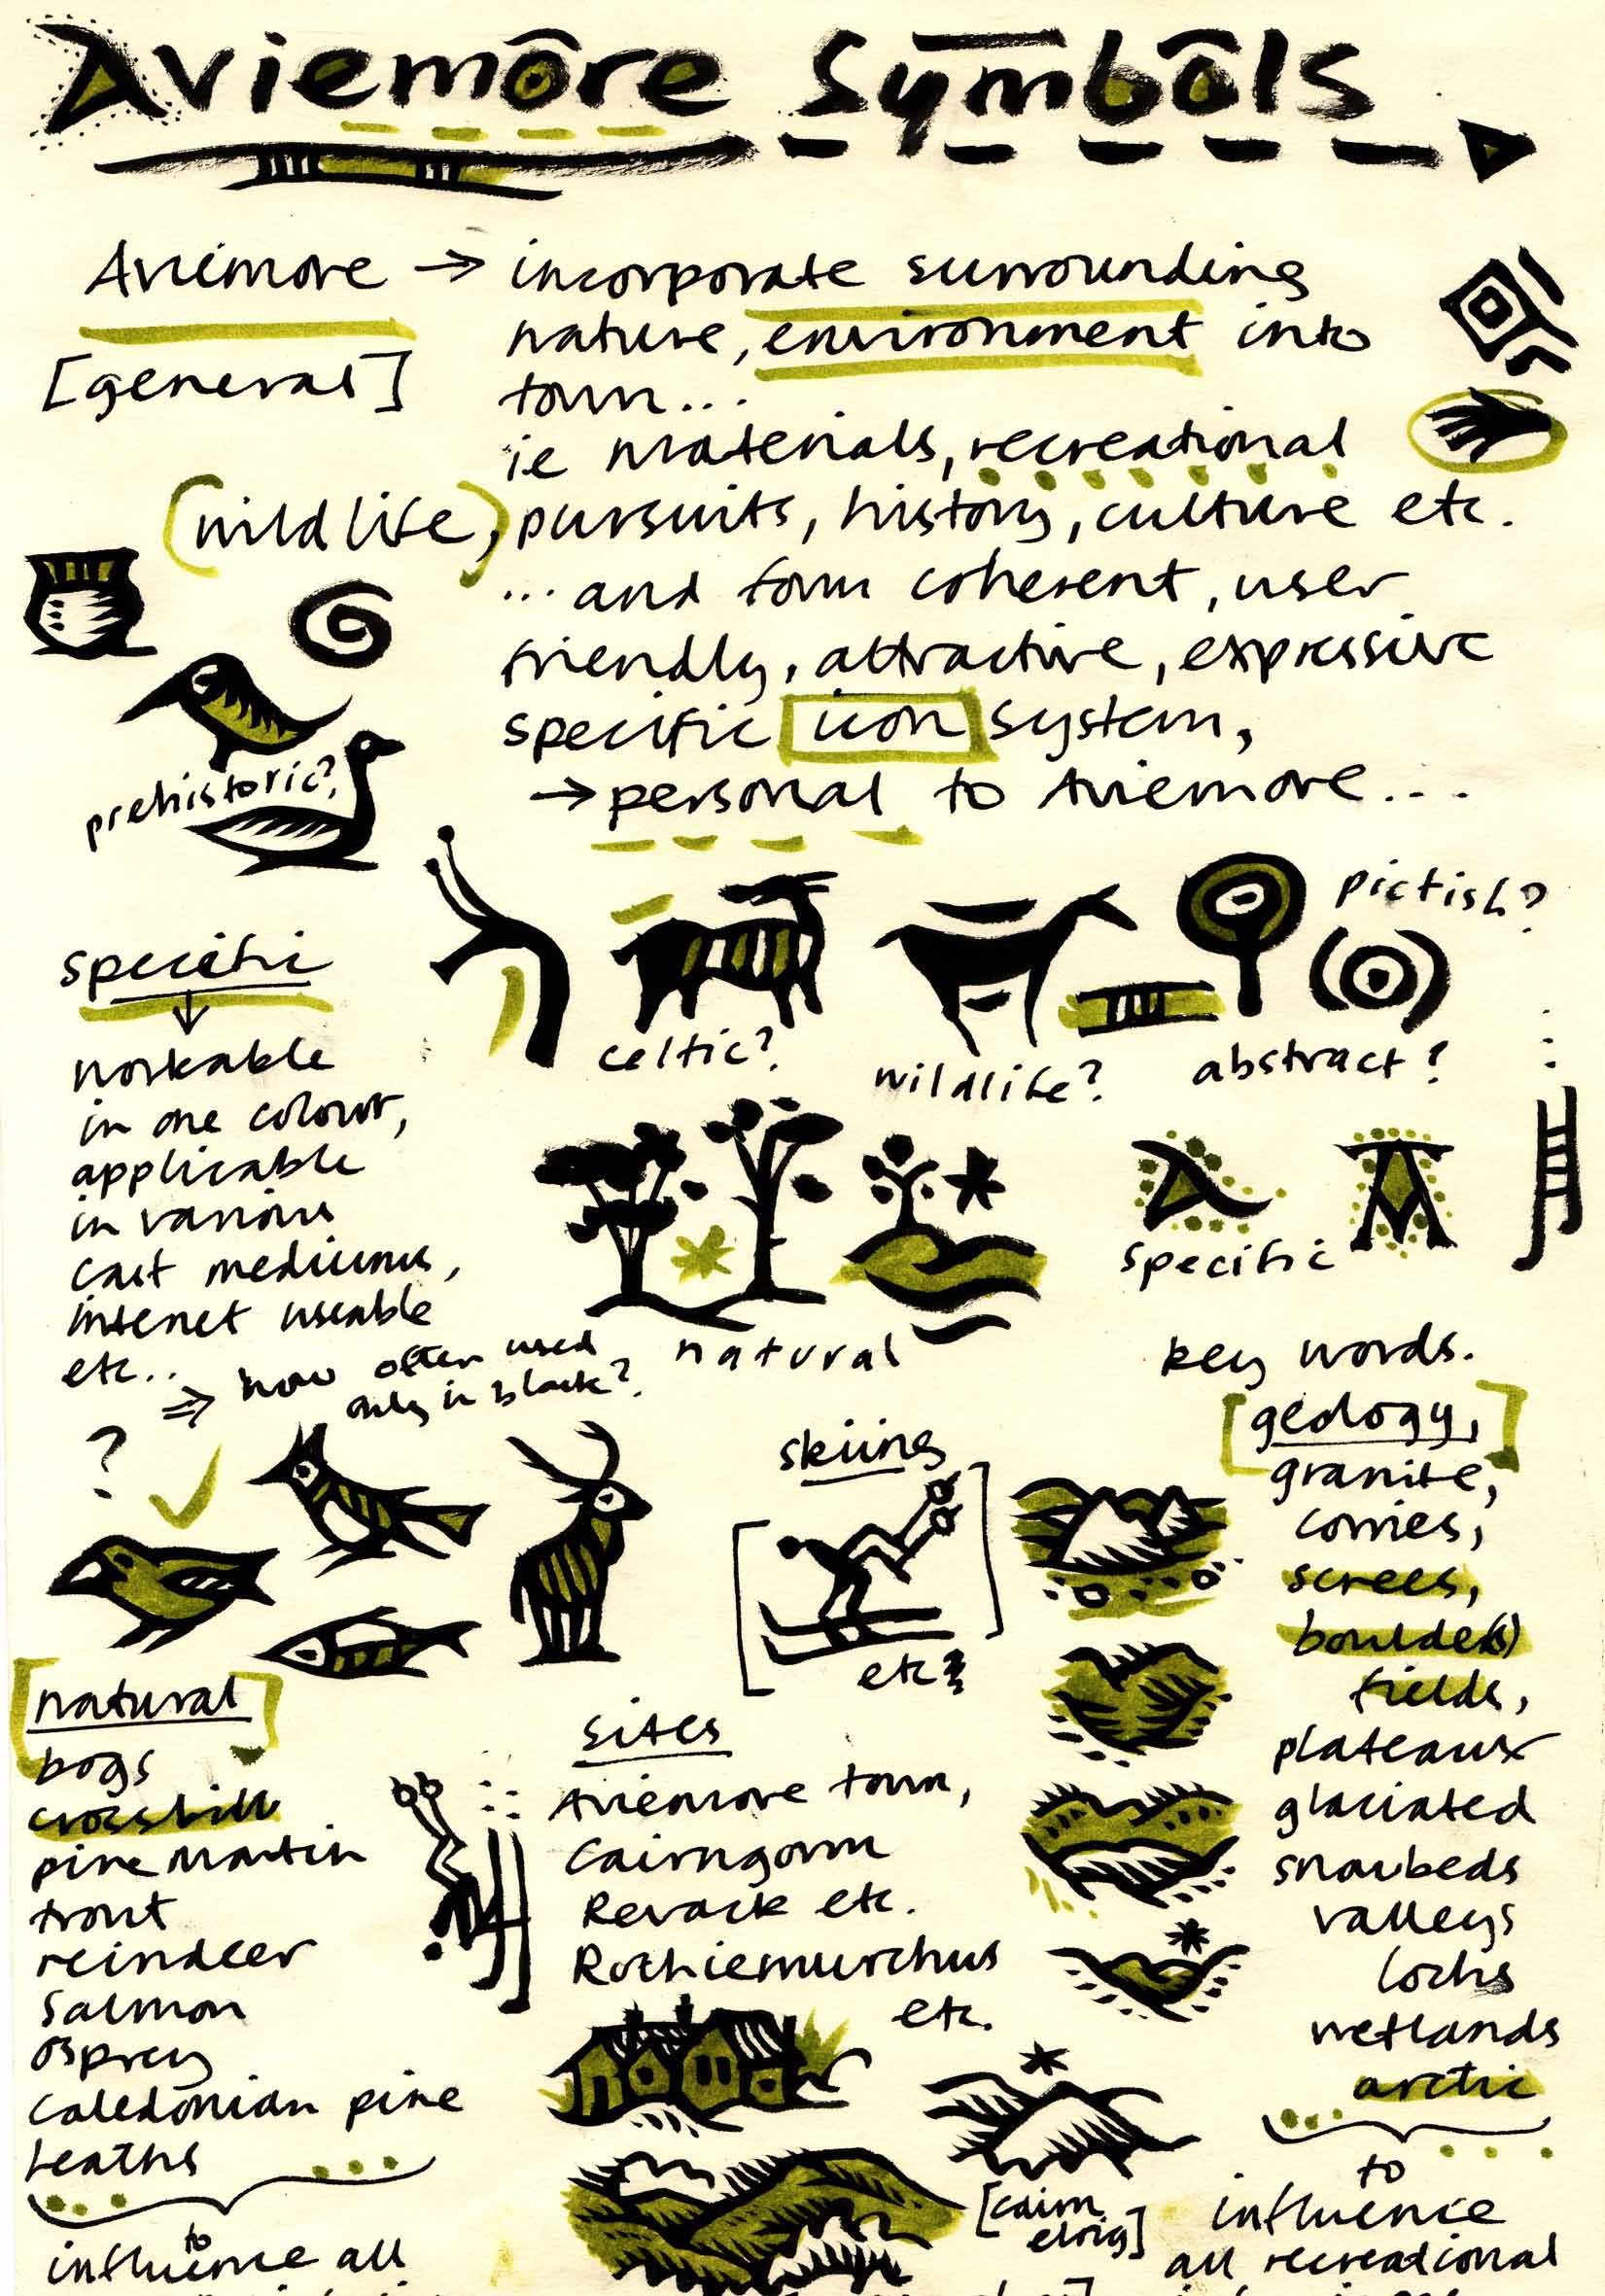 Aviemore Symbols
Aviemore → incorporate surrounding
nature, environment into
town...
[general]
ie materials, recreational
(wildlife), pursuits, history, culture etc.
... and form coherent, user
friendly, attractive, expressive
specific icon system,
→ personal to Aviemore...
prehistoric?
pictish?
celtic?
wildlife?
abstract?
specific
↓
workable
in one colour,
applicable
in various
cast mediums,
internet useable
etc..
⇒ how often used
only in black?
?
natural
specific
key words.
[geology,]
granite,
corries,
screes,
boulder(s)
fields,
plateaux
glaciated
snowbeds
valleys
lochs
wetlands
arctic
to
influence
all recreational
skiing
etc
[natural]
bogs
crossbill
pine martin
trout
reindeer
salmon
osprey
caledonian pine
heaths
to
influence all
sites
Aviemore town,
Cairngorm
Revack etc.
Rothiemurchus
etc.
[cairn